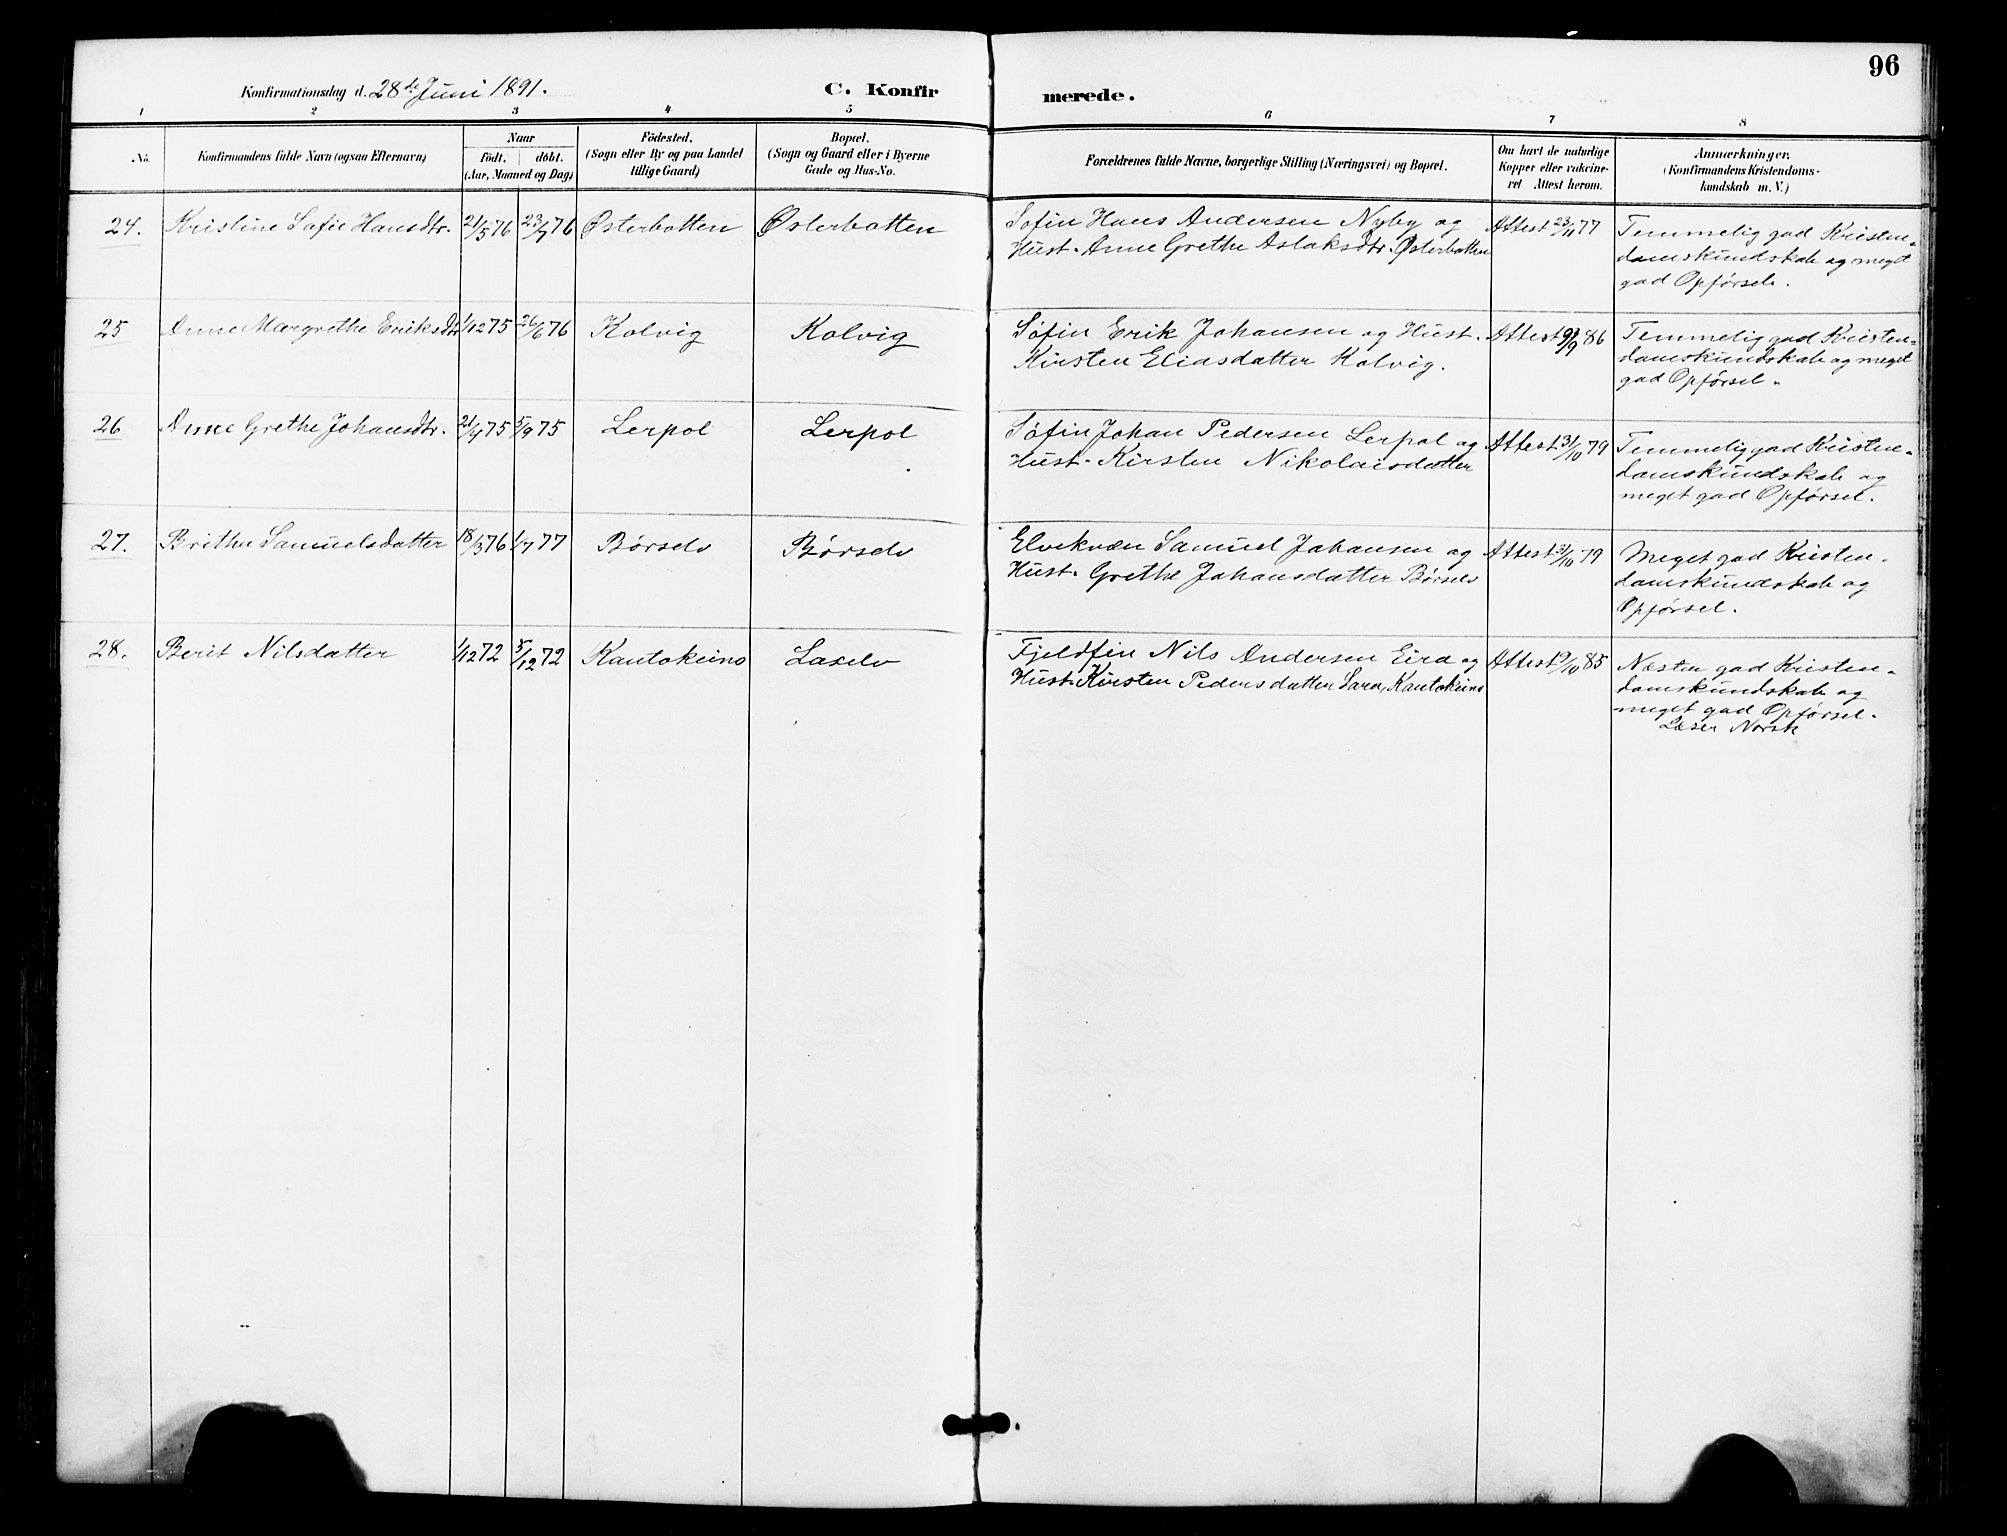 96
Konfirmationsdag d. 28de Juni 1891.
C. Konfirmerede.
1 2 3 4 5 6 7 8
No.
Konfirmandens fulde Navn (ogsaa Efternavn)
Naar
født. døbt.
(Aar, Maaned og Dag)
Födested.
(Sogn eller By og paa Landet
tillige Gaard)
Bopæl.
(Sogn og Gaard eller i Byerne
Gade og Hus-No.
Forældrenes fulde Navne, borgerlige Stilling (Næringsvei) og Bopæl.
Om havt de naturlige
Kopper eller vakcine-
ret Attest herom.
Anmærkninger.
(Konfirmandens Kristendoms-
kundskab m. V.)
24. Kristine Sofie Hansdtr. 21/5 76 23/7 76 Østerbotten Østerbotten
Søfin Hans Andersen Nyby og
Hust. Anne Grethe Aslaksdtr. Østerbotten
Attest 23/11 77
Temmelig god Kristen-
domskundskab og meget
god Opførsel.
25 Anne Margrethe Eriksdtr 1/12 75 26/6 76 Kolvig Kolvig
Søfin Erik Johansen og Hust.
Kirsten Eliasdatter Kolvig.
Attest 86
Temmelig god Kristen-
domskundskab og meget
god Opførsel.
26 Anne Grethe Johansdtr. 21/4 75 5/9 75 Lerpol Lerpol
Søfin Johan Pedersen Lerpol og
Hust. Kirsten Nikolaisdatter
Attest 31/10 79
Temmelig god Kristen-
domskundskab og
meget god Opførsel.
27. Britha Samuelsdatter 18/3 76 1/7 77 Børselv Børselv
Elvekvæn Samuel Johansen og
Hust. Grethe Johansdatter Børselv
Attest 31/10 79
Meget god Kristen-
domskundskab og
Opførsel.
28. Berit Nilsdatter 1/12 72 5/12 72 Kautokeino Laxelv
Fjeldfin Nils Andersen Eira og
Hust. Kirsten Pedersdatter Sara, Kautokeino
Attest 9/10 85
Næsten god Kristen-
domskundskab og
meget god Opførsel.
Læser Norsk